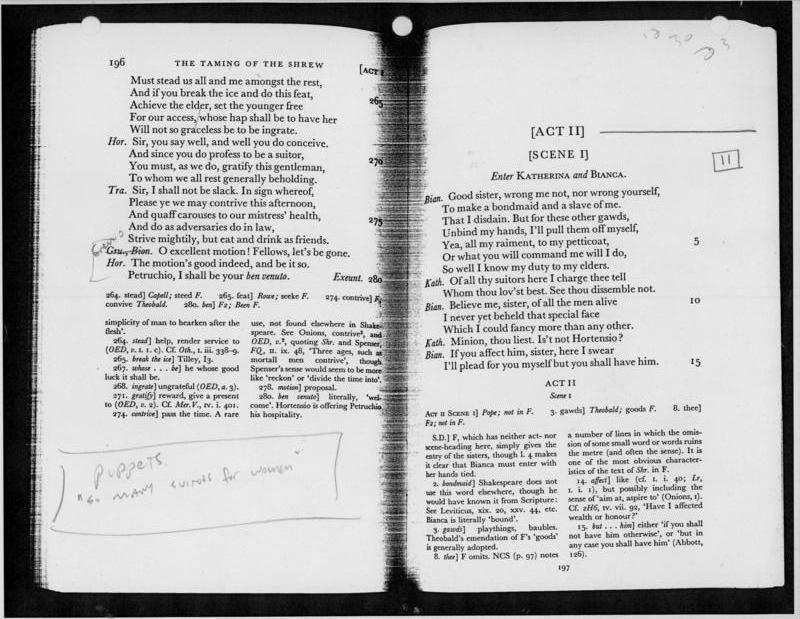 196 THE TAMING OF THE SHREW [ACT I
Must stead us all and me amongst the rest,
And if you break the ice and do this feat, 265
Achieve the elder, set the younger free
For our access, whose hap shall be to have her
Will not so graceless be to be ingrate.
Hor. Sir, you say well, and well you do conceive.
And since you do profess to be a suitor, 270
You must, as we do, gratify this gentleman,
To whom we all rest generally beholding.
Tra. Sir, I shall not be slack. In sign whereof,
Please ye we may contrive this afternoon,
And quaff carouses to our mistress' health, 275
And do as adversaries do in law,
Strive mightily, but eat and drink as friends.
Gru., Bion. O excellent motion! Fellows, let's be gone.
Hor. The motion's good indeed, and be it so.
Petruchio, I shall be your ben venuto. Exeunt. 280
264. stead] Capell; steed F. 265. feat] Rowe; seeke F. 274. contrive] F;
convive Theobald. 280. ben] F2; Been F.
simplicity of man to hearken after the
flesh'.
264. stead] help, render service to
(OED, v. 1. 1. c). Cf. Oth., I. iii. 338–9.
265. break the ice] Tilley, I3.
267. whose . . . be] he whose good
luck it shall be.
268. ingrate] ungrateful (OED, a. 3).
271. gratify] reward, give a present
to (OED, v. 2). Cf. Mer.V., IV. i. 401.
274. contrive] pass the time. A rare
use, not found elsewhere in Shake-
speare. See Onions, contrive², and
OED, v.², quoting Shr. and Spenser,
FQ, II. ix. 48, 'Three ages, such as
mortall men contrive', though
Spenser's sense would seem to be more
like 'reckon' or 'divide the time into'.
278. motion] proposal.
280. ben venuto] literally, 'wel-
come'. Hortensio is offering Petruchio
his hospitality.
puppets.
"so many suitors for women"
[ACT II]
[SCENE I]
11
Enter KATHERINA and BIANCA.
Bian. Good sister, wrong me not, nor wrong yourself,
To make a bondmaid and a slave of me.
That I disdain. But for these other gawds,
Unbind my hands, I'll pull them off myself,
Yea, all my raiment, to my petticoat, 5
Or what you will command me will I do,
So well I know my duty to my elders.
Kath. Of all thy suitors here I charge thee tell
Whom thou lov'st best. See thou dissemble not.
Bian. Believe me, sister, of all the men alive 10
I never yet beheld that special face
Which I could fancy more than any other.
Kath. Minion, thou liest. Is't not Hortensio?
Bian. If you affect him, sister, here I swear
I'll plead for you myself but you shall have him. 15
ACT II
Scene 1
ACT II SCENE 1] Pope; not in F. 3. gawds] Theobald; goods F. 8. thee]
F2; not in F.
S.D.] F, which has neither act- nor
scene-heading here, simply gives the
entry of the sisters, though l. 4 makes
it clear that Bianca must enter with
her hands tied.
2. bondmaid] Shakespeare does not
use this word elsewhere, though he
would have known it from Scripture:
See Leviticus, xix. 20, xxv. 44, etc.
Bianca is literally 'bound'.
3. gawds] playthings, baubles.
Theobald's emendation of F's 'goods'
is generally adopted.
8. thee] F omits. NCS (p. 97) notes
a number of lines in which the omis-
sion of some small word or words ruins
the metre (and often the sense). It is
one of the most obvious character-
istics of the text of Shr. in F.
14. affect] like (cf. I. i. 40; Lr,
I. i. 1), but possibly including the
sense of 'aim at, aspire to' (Onions, 1).
Cf. 2H6, IV. vii. 92, 'Have I affected
wealth or honour?'
15. but . . . him] either 'if you shall
not have him otherwise', or 'but in
any case you shall have him' (Abbott,
126).
197